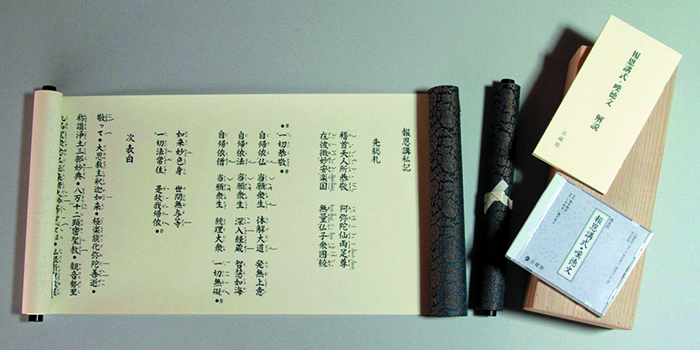 報恩講私記
先総礼
稽首天人所恭敬 阿弥陀仙両足尊
在彼微妙安楽国 無量仏子衆囲繞
一切恭敬
自帰依仏 当願衆生 体解大道 発無上意
自帰依法 当願衆生 深入経蔵 智慧如海
自帰依僧 当願衆生 統理大衆 一切無礙
如来妙色身 世間無与等
一切法常住 是故我帰依
次表白
敬って・大恩教主釈迦如来・極楽能化弥陀善逝・
称讃浄土三部妙典・八万十二顕密聖教・観音勢至
報恩講式・嘆徳文 解説
法藏館
報恩講式・嘆徳文
法藏館